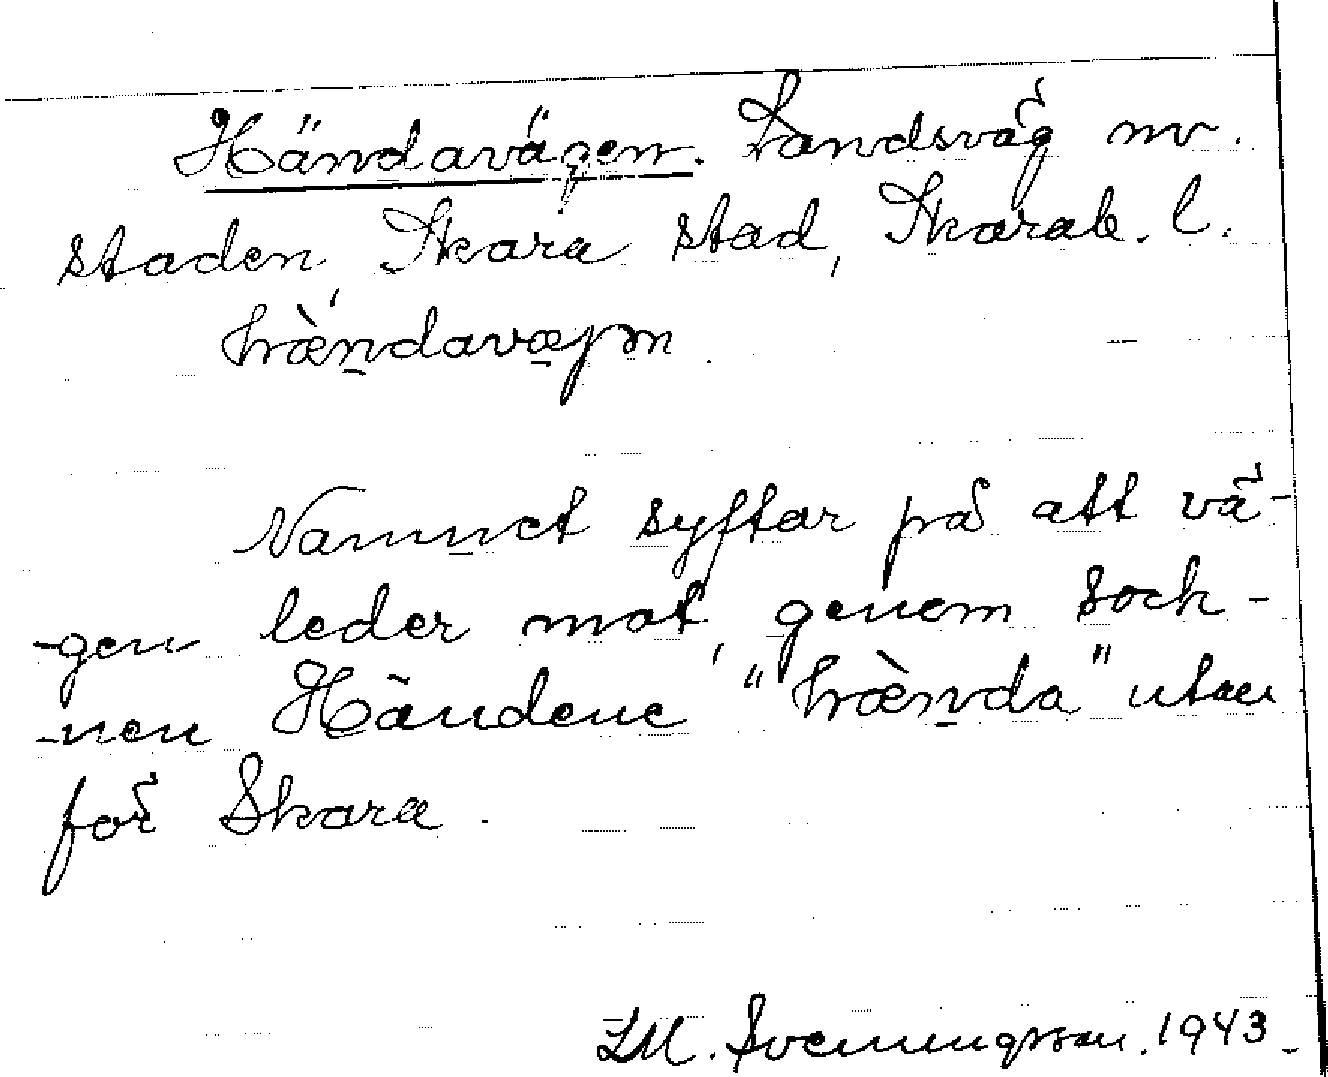 Händavägen. Landsväg nv.
staden, Skara stad, Skarab. l.
hæ̀ṉdavæ̱jm
Namnet syftar på att vä-
-gen leder mot, genom sock-
-nen Händene "hæ̀ṉda" utan
för Skara.
LM. Svenningsson. 1943